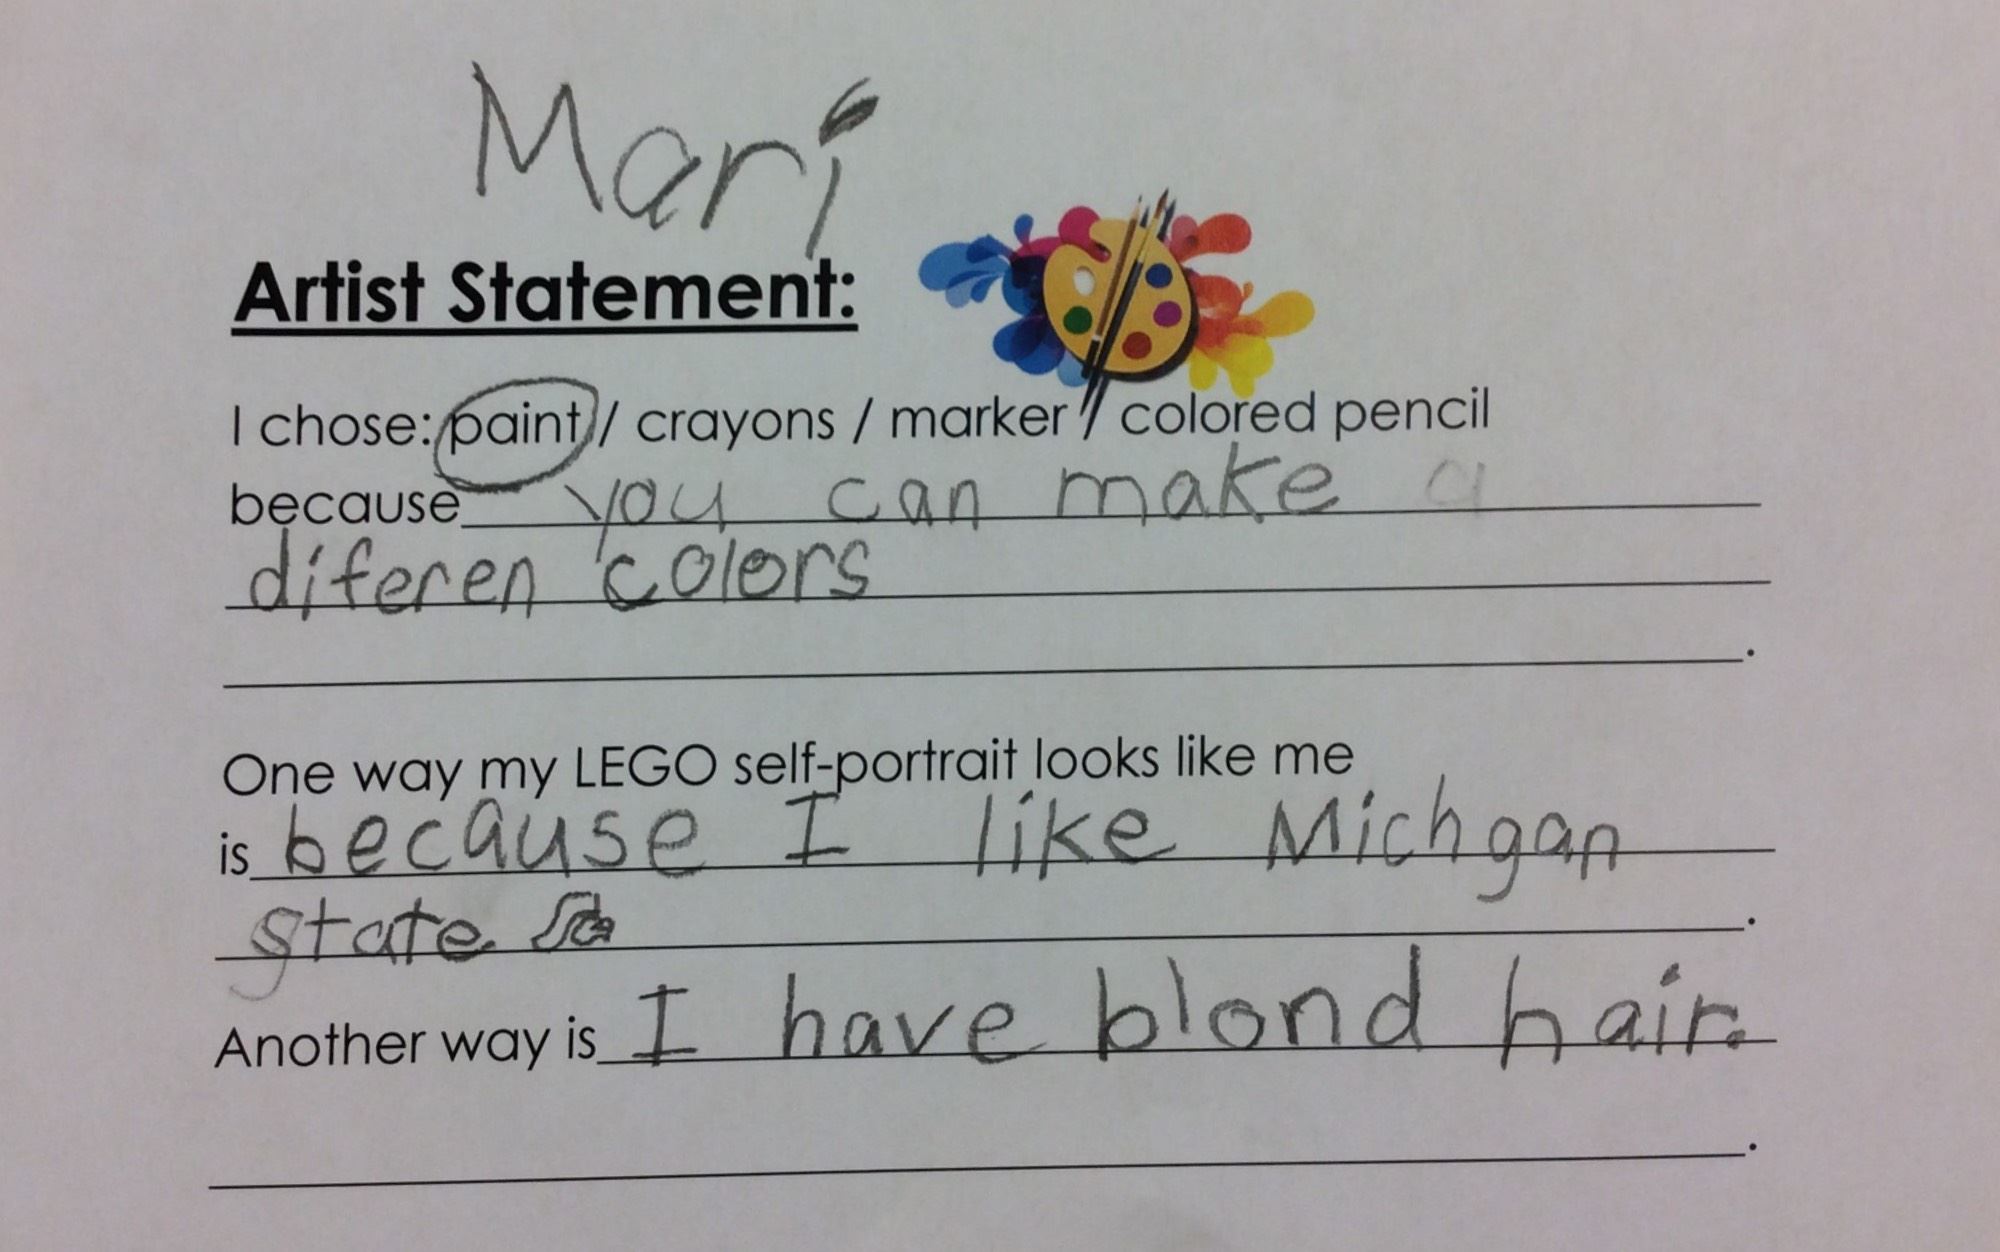 Mari
Artist Statement:
I chose: paint / crayons / marker / colored pencil
because you can make a
diferen colors
.
One way my LEGO self-portrait looks like me
is because I like Michgan
state.
Another way is I have blond hair.
.